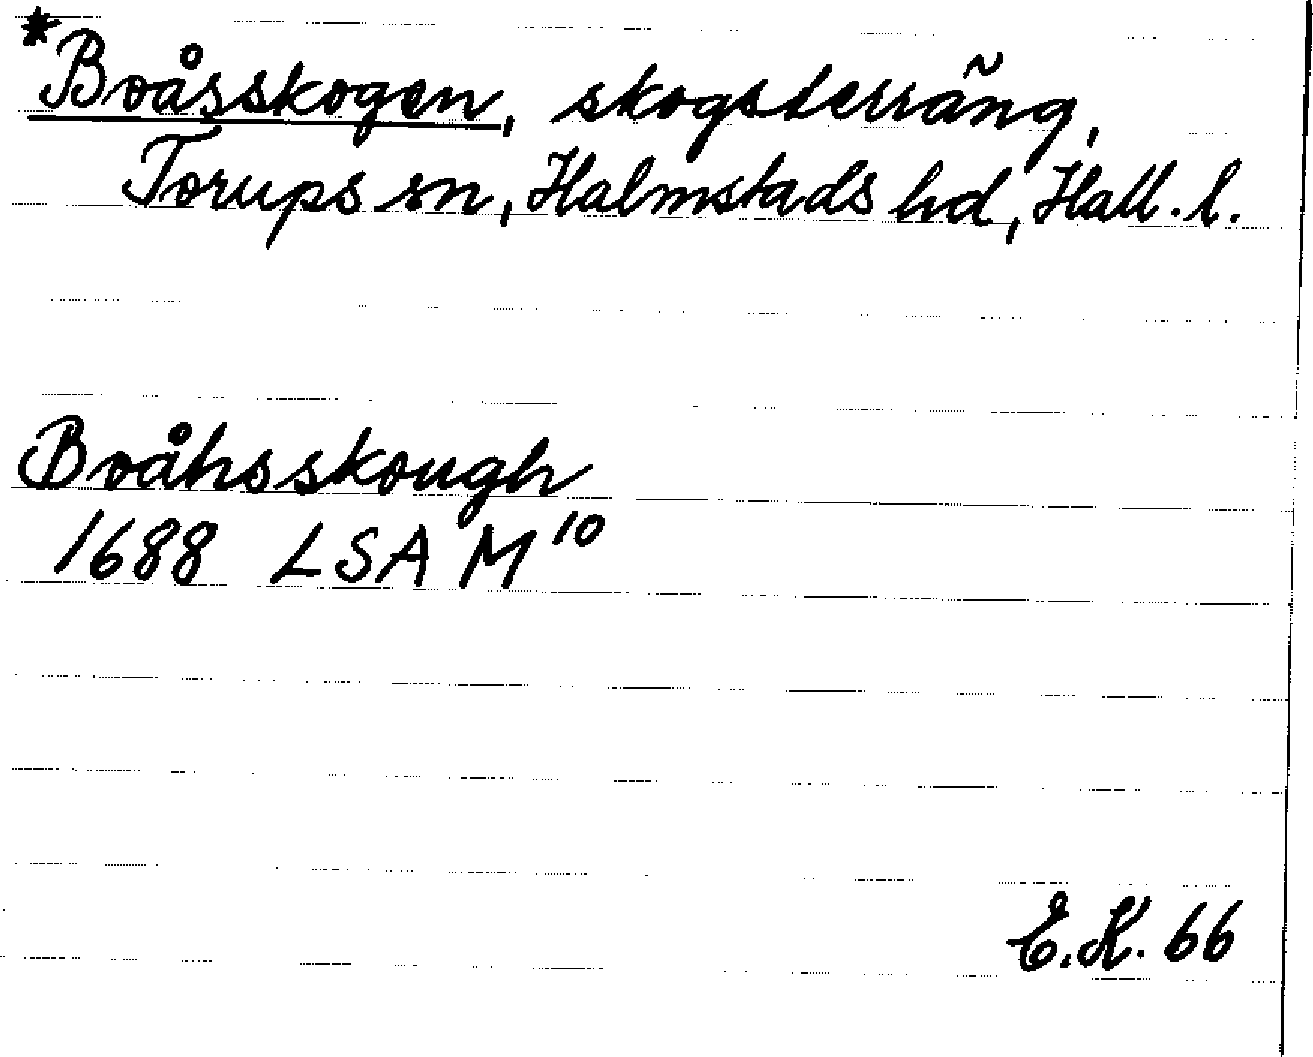 *Boåsskogen, skogsterräng,
Torups sn, Halmstads hd, Hall. l.
Boåhsskough
1688 LSA M¹⁰
E.K. 66